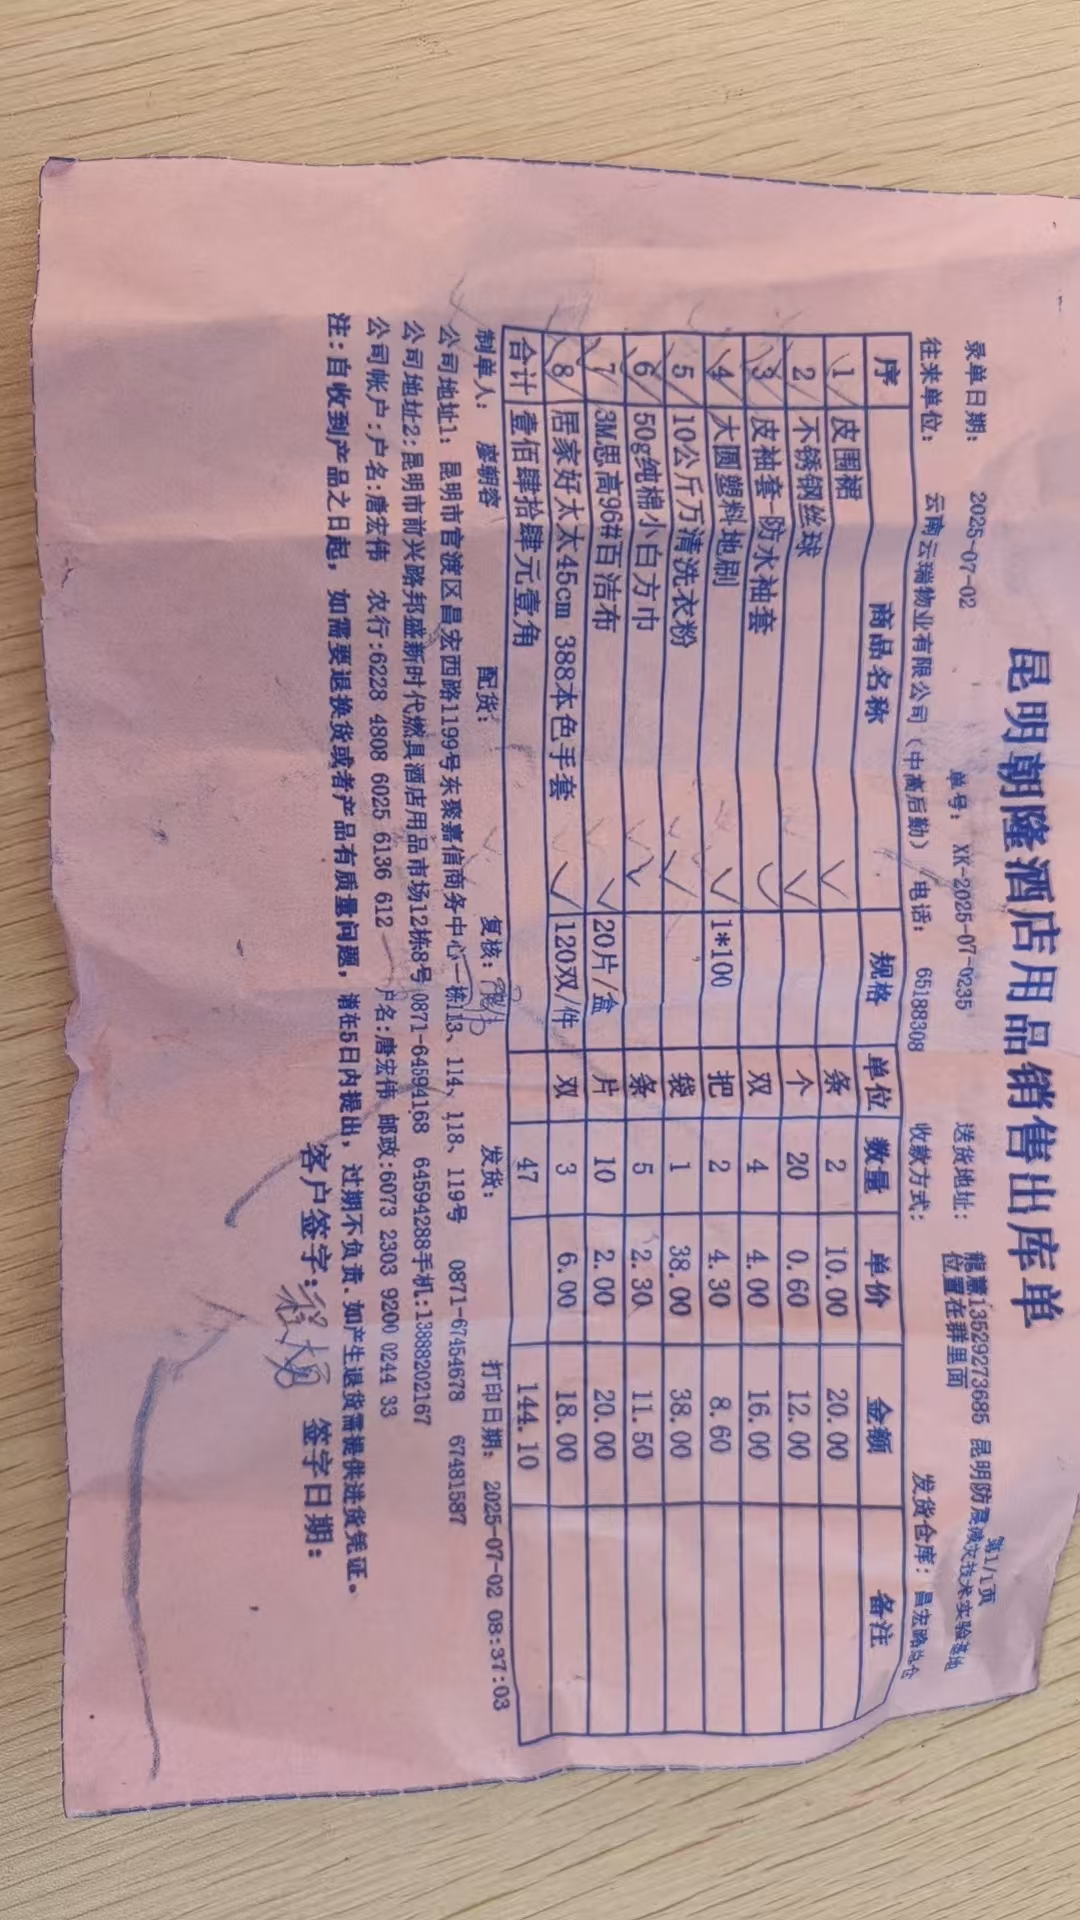 昆明朝隆酒店用品销售出库单
第1/1页
录单日期： 2025-07-02 单号： XK-2025-07-0235 送货地址： 龍慧13529273685 昆明防震减灾技术实验基地
位置在群里面
往来单位： 云南云瑞物业有限公司（中高后勤） 电话： 65188308 收款方式： 发货仓库： 昌宏路总仓
序 商品名称 规格 单位 数量 单价 金额 备注
1 皮围裙 条 2 10.00 20.00
2 不锈钢丝球 个 20 0.60 12.00
3 皮袖套-防水袖套 双 4 4.00 16.00
4 大圆塑料地刷 1*100 把 2 4.30 8.60
5 10公斤万清洗衣粉 袋 1 38.00 38.00
6 50g纯棉小白方巾 条 5 2.30 11.50
7 3M思高96#百洁布 20片/盒 片 10 2.00 20.00
8 居家好太太45cm 388本色手套 120双/件 双 3 6.00 18.00
合计 壹佰肆拾肆元壹角 47 144.10
制单人： 廖朝容 配货： 复核： 发货： 打印日期： 2025-07-02 08:37:03
公司地址1: 昆明市官渡区昌宏西路1199号东聚嘉信商务中心一栋113、114、118、119号 0871-67454678 67481587
公司地址2:昆明市前兴路邦盛新时代燃具酒店用品市场12栋8号 0871-64594168 64594288手机:13888202167
公司帐户:户名:唐宏伟 农行:6228 4808 6025 6136 612 户名:唐宏伟 邮政:6073 2303 9200 0244 33
注:自收到产品之日起, 如需要退换货或者产品有质量问题, 请在5日内提出, 过期不负责.如产生退货需提供进货凭证。
客户签字: 签字日期: